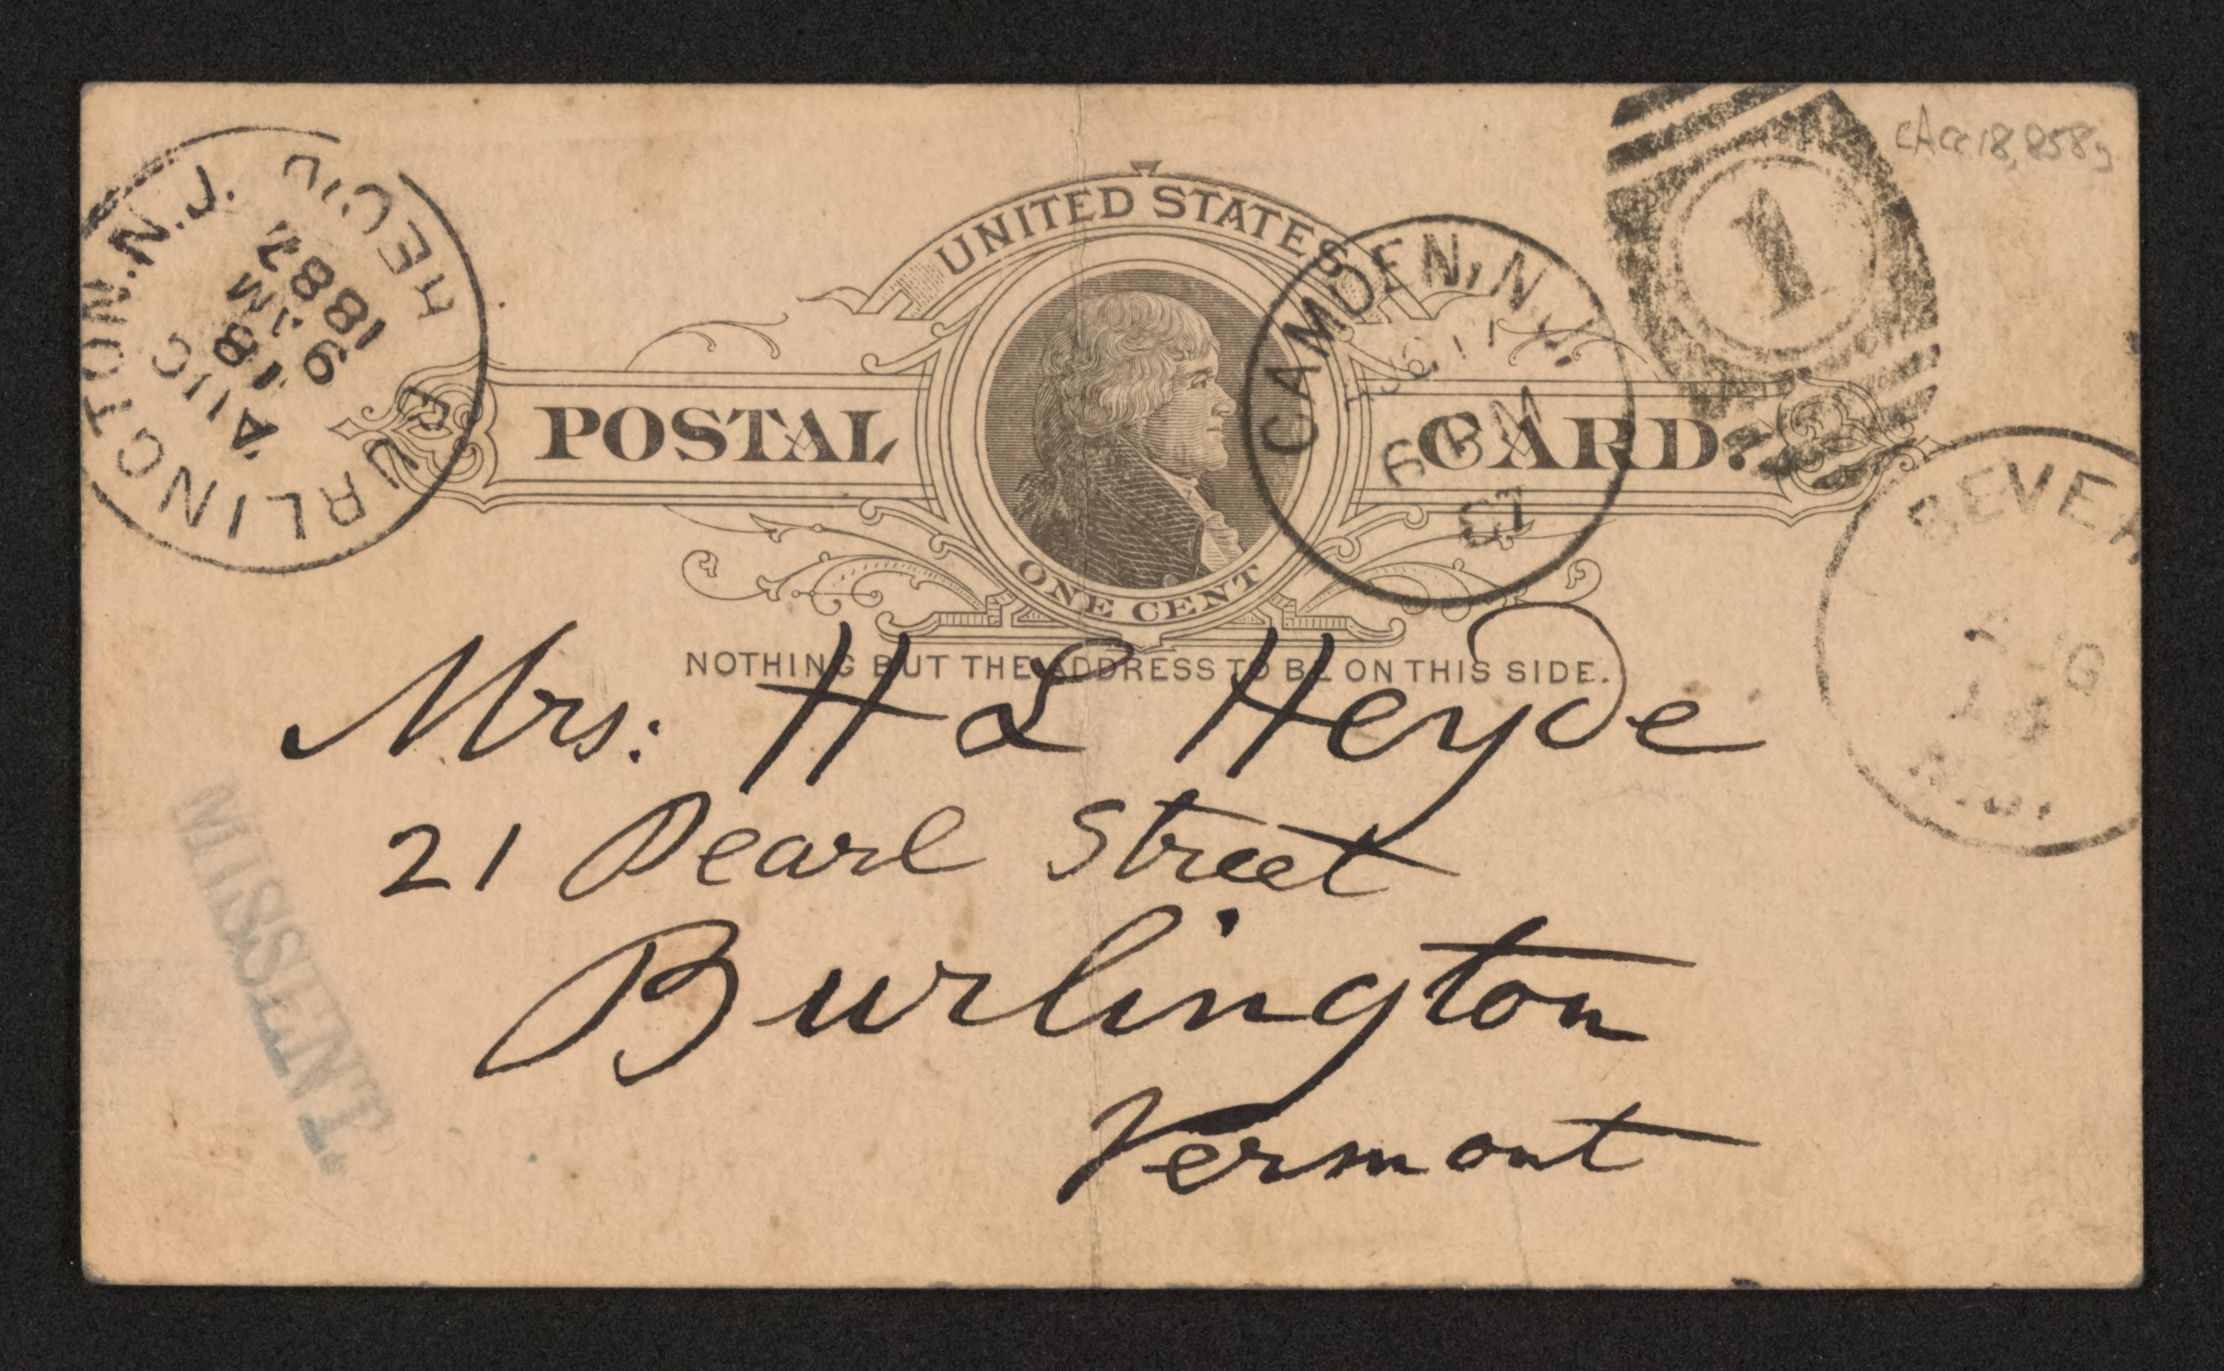 UNITED STATES
POSTAL CARD.
ONE CENT
NOTHING BUT THE ADDRESS TO BE ON THIS SIDE.
BURLINGTON. N.J.
REC'D
AUG
18
9 AM
1887
CAMDEN, N.J.
6 PM
87
1
BEVER
AUG
18
N.J.
Mrs: H L Heyde
21 Pearl Street
Burlington
Vermont
MISSENT.